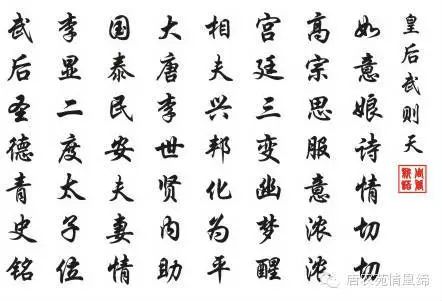 皇后武则天
如意娘诗情切切
高宗思服意浓浓
宫廷三变幽梦醒
相夫兴邦化为平
大唐李世贤内助
国泰民安夫妻情
李显二度太子位
武后圣德青史铭
唐农苑情凰缔